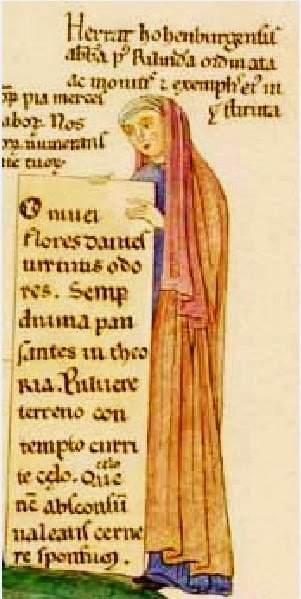 Herrat hohenburgensis
abbā p' Rilindā ordinata
ac monitis ⁊ exemplis ei' in
stituta
pia merces
labor. Nos
numerans
O nivei
flores dantes
virtutis odo
res. Semp
divina pau
santes in theo
ria. Pulvere
terreno con
tempto curri
te celo. Que
nc absconsū
valeatis cerne
re sponsum.